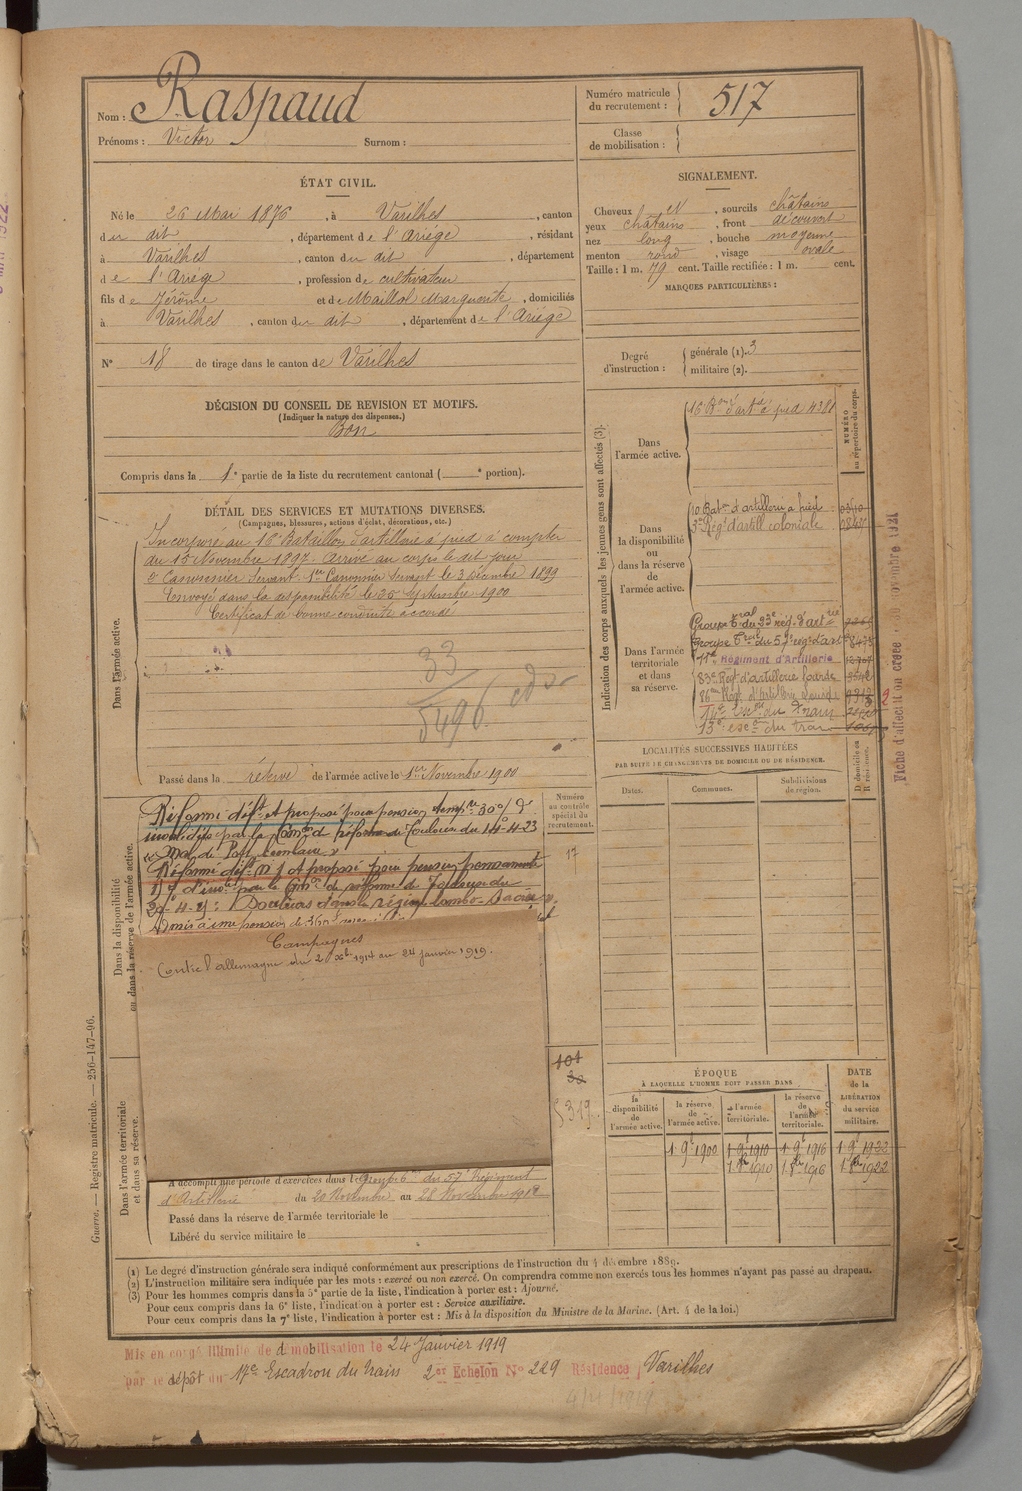 Nom : Raspaud
Prénoms : Victor Surnom :
Numéro matricule du recrutement : 517
Classe de mobilisation :
ÉTAT CIVIL.
Né le 26 Mai 1876, à Varilhes, canton
du dit, département de l'Ariège, résidant
à Varilhes, canton du dit, département
de l'Ariège, profession de cultivateur
fils de Jérôme et de Maillol Marguerite, domiciliés
à Varilhes, canton du dit, département de l'Ariège
N° 18 de tirage dans le canton de Varilhes
SIGNALEMENT.
Cheveux et, sourcils châtains
yeux châtains, front découvert
nez long, bouche moyenne
menton rond, visage ovale
Taille : 1 m. 79 cent. Taille rectifiée : 1 m. cent.
MARQUES PARTICULIÈRES :
Degré d'instruction : générale (1). 3
militaire (2).
DÉCISION DU CONSEIL DE REVISION ET MOTIFS.
(Indiquer la nature des dispenses.)
Bon
Compris dans la 1e partie de la liste du recrutement cantonal ( e portion).
DÉTAIL DES SERVICES ET MUTATIONS DIVERSES.
(Campagnes, blessures, actions d'éclat, décorations, etc.)
Dans l'armée active.
Incorporé au 16e Bataillon d'artillerie à pied à compter
du 15 Novembre 1897. Arrivé au corps le dit jour
2e Canonnier servant. 1er Canonnier servant le 3 décembre 1899
Envoyé dans la disponibilité le 25 Septembre 1900
Certificat de bonne conduite accordé
33
5496
Passé dans la réserve de l'armée active le 1er Novembre 1900
Dans la disponibilité ou dans la réserve de l'armée active.
Réformé déft et proposé pour pension tempre 30% d'
invalidité par la Comon de réforme de Toulouse du 14-4-23
Réformé déft n° 1 et proposé pour pension permanente
par la Comon de réforme de Toulouse du
Campagnes
Contre l'allemagne du 2 Xbre 1914 au 24 janvier 1919.
Numéro au contrôle spécial du recrutement.
17
101
30
319
Dans l'armée territoriale et dans sa réserve.
A accompli une période d'exercices dans le Groupe du 57e Régiment
d'Artillerie du 20 Novembre au 28 Novembre 1912
Passé dans la réserve de l'armée territoriale le
Libéré du service militaire le
Indication des corps auxquels les jeunes gens sont affectés (3).
NUMÉRO au répertoire du corps.
Dans l'armée active.
16e Bon d'arte à pied 4381
Dans la disponibilité ou dans la réserve de l'armée active.
10 Baton d'artillerie à pied
3e Régt d'artill coloniale
Dans l'armée territoriale et dans sa réserve.
Groupe tal du 23e rég. d'art rie
Groupe trial du 57e rég. d'art
Régiment d'Artillerie
83e Régt d'artillerie lourde
86e Régt d'Artillerie Lourde
Escon du Train
escon du train
LOCALITÉS SUCCESSIVES HABITÉES
PAR SUITE DE CHANGEMENTS DE DOMICILE OU DE RÉSIDENCE.
Dates. Communes. Subdivisions de région. D. domicile ou R. résidence.
ÉPOQUE
À LAQUELLE L'HOMME DOIT PASSER DANS
la disponibilité de l'armée active. la réserve de l'armée active. l'armée territoriale. la réserve de l'armée territoriale. DATE de la LIBÉRATION du service militaire.
1 9e 1900 1 9e 1910 1 9e 1916 1 9e 1922
1910 1916 1922
Fiche d'affection créée 1921
Guerre. — Registre matricule. — 256-147-96.
(1) Le degré d'instruction générale sera indiqué conformément aux prescriptions de l'instruction du 4 décembre 1889.
(2) L'instruction militaire sera indiquée par les mots : exercé ou non exercé. On comprendra comme non exercés tous les hommes n'ayant pas passé au drapeau.
(3) Pour les hommes compris dans la 5e partie de la liste, l'indication à porter est : Ajourné.
Pour ceux compris dans la 6e liste, l'indication à porter est : Service auxiliaire.
Pour ceux compris dans la 7e liste, l'indication à porter est : Mis à la disposition du Ministre de la Marine. (Art. 4 de la loi.)
Mis en congé illimité de démobilisation le 24 Janvier 1919
par le dépôt du 17e Escadron du train 2er Echelon N° 229 Résidence Varilhes